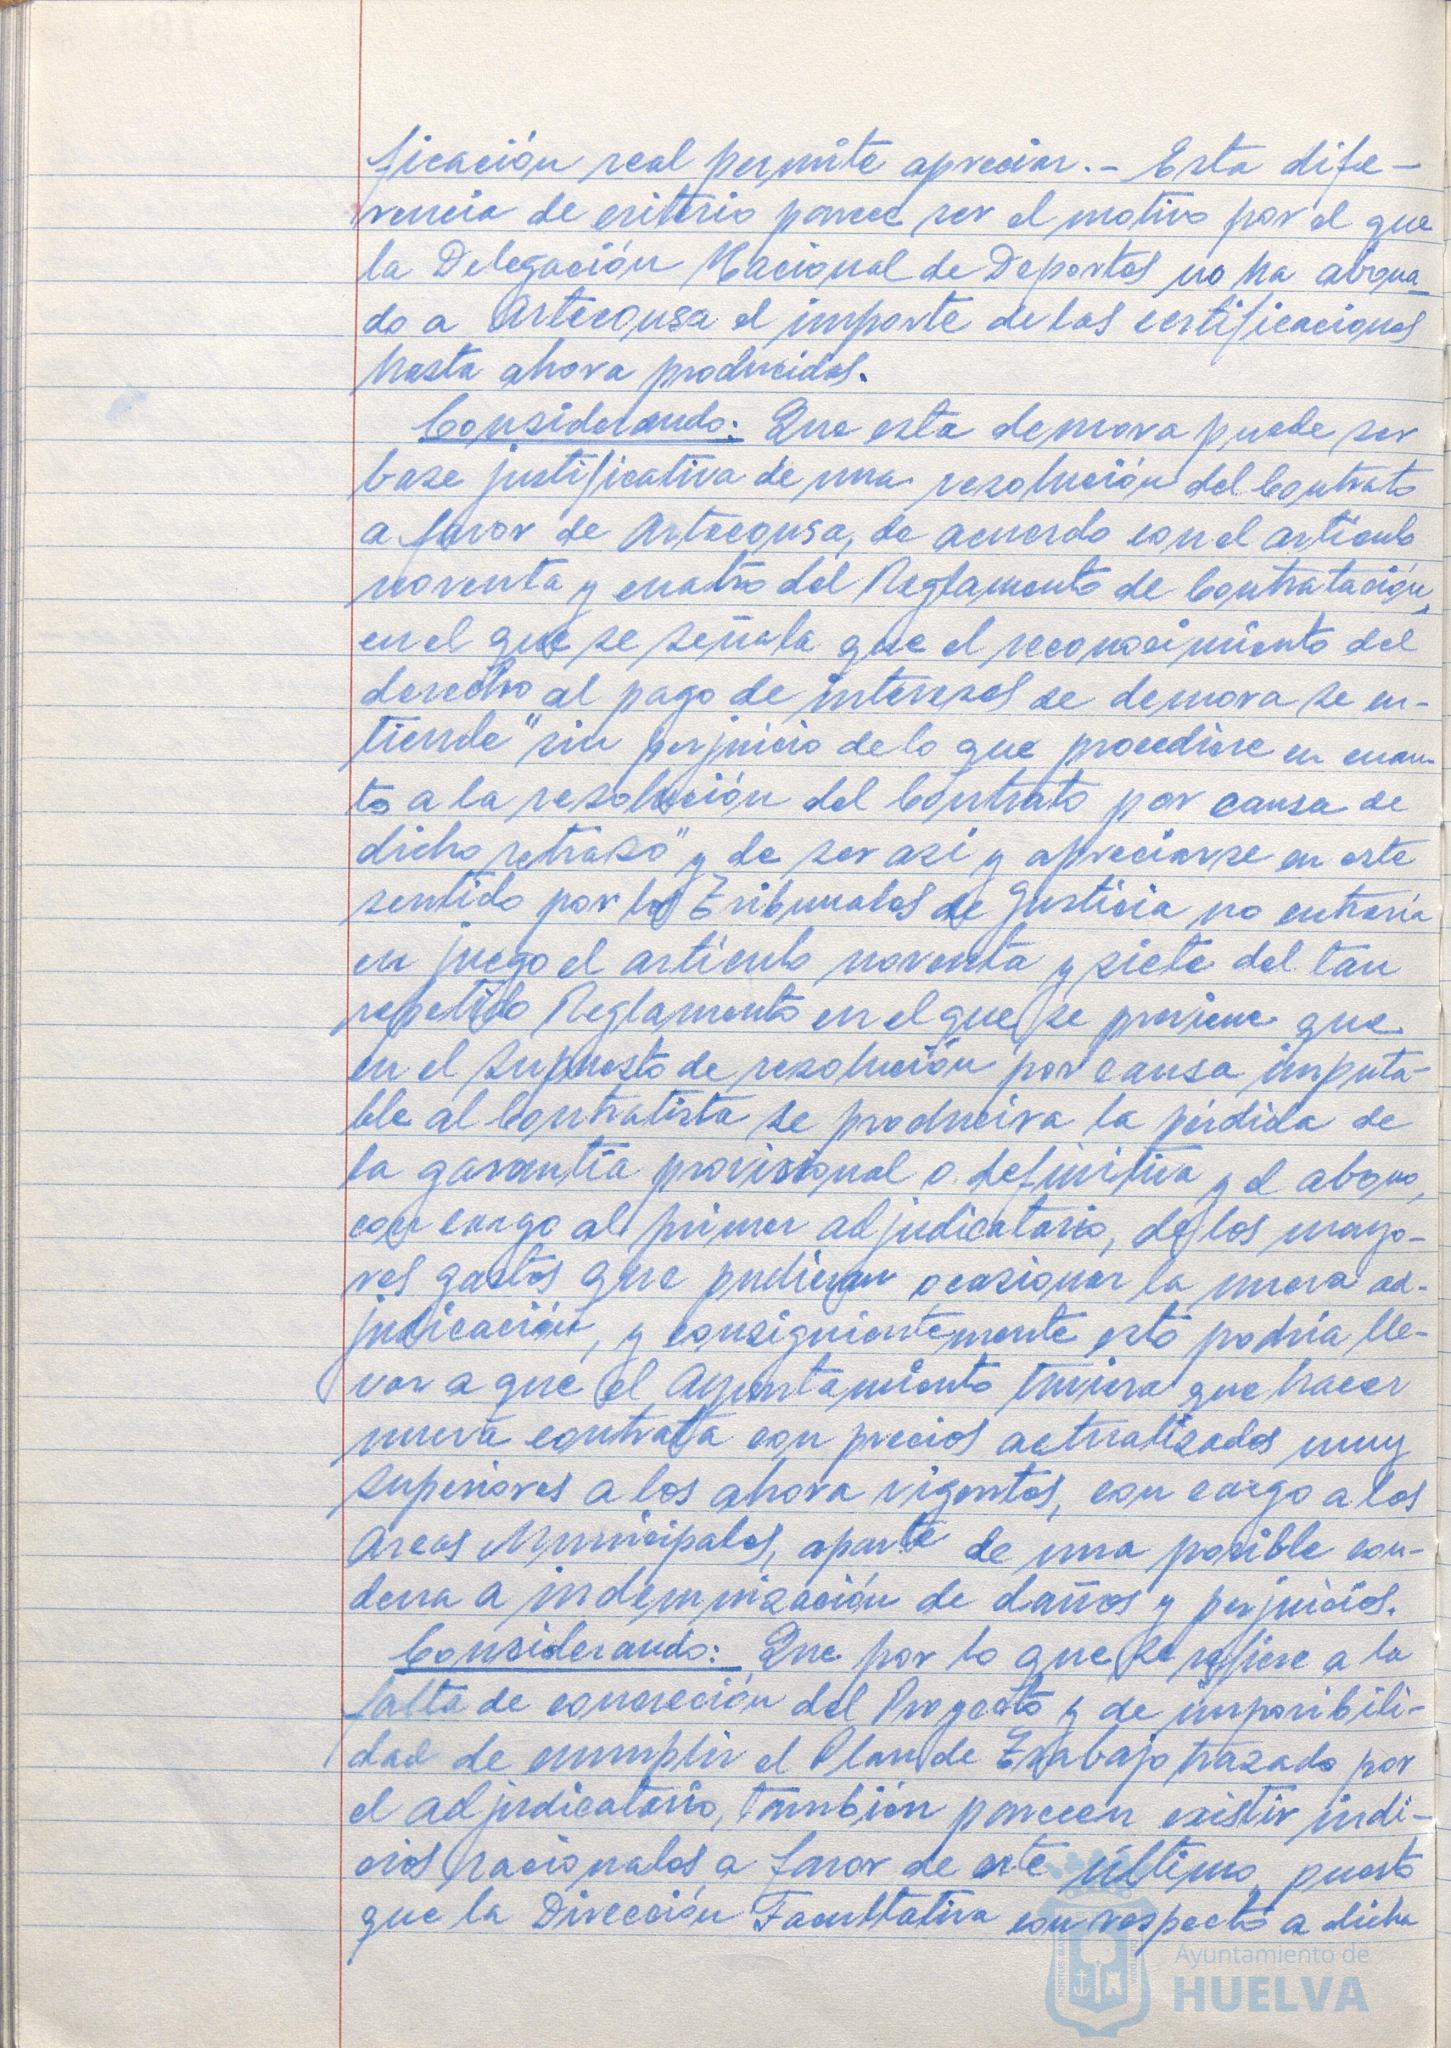 ficación real permite apreciar.- Esta dife-
rencia de criterio parece ser el motivo por el que
la Delegación Nacional de Deportes no ha abona-
do a Artecousa el importe de las certificaciones
hasta ahora producidas.
Considerando: Que esta demora puede ser
base justificativa de una resolución del Contrato
a favor de Artecousa, de acuerdo con el artículo
noventa y cuatro del Reglamento de Contratación,
en el que se señala que el reconocimiento del
derecho al pago de intereses de demora se en-
tiende "sin perjuicio de lo que procediere en cuan-
to a la resolución del Contrato por causa de
dicho retraso" y de ser así y apreciarse en este
sentido por los Tribunales de Justicia no entraría
en juego el artículo noventa y siete del tan
repetido Reglamento en el que se previene que
en el supuesto de resolución por causa imputa-
ble al Contratista se producira la pérdida de
la garantía provisional o definitiva y el abono,
con cargo al primer adjudicatario, de los mayo-
res gastos que pudieran ocasionar la nueva ad-
judicación, y consiguientemente esto podría lle-
var a que el Ayuntamiento tuviera que hacer
nueva contrata con precios actualizados muy
superiores a los ahora vigentes, con cargo a las
Arcas Municipales, aparte de una posible con-
dena a indemnización de daños y perjuicios.
Considerando: Que por lo que se refiere a la
falta de concreción del Proyecto y de imposibili-
dad de cumplir el Plan de Trabajo trazado por
el adjudicatario, también parecen existir indi-
cios racionales a favor de este último, puesto
que la Dirección Facultativa con respecto a dicha
Ayuntamiento de
HUELVA